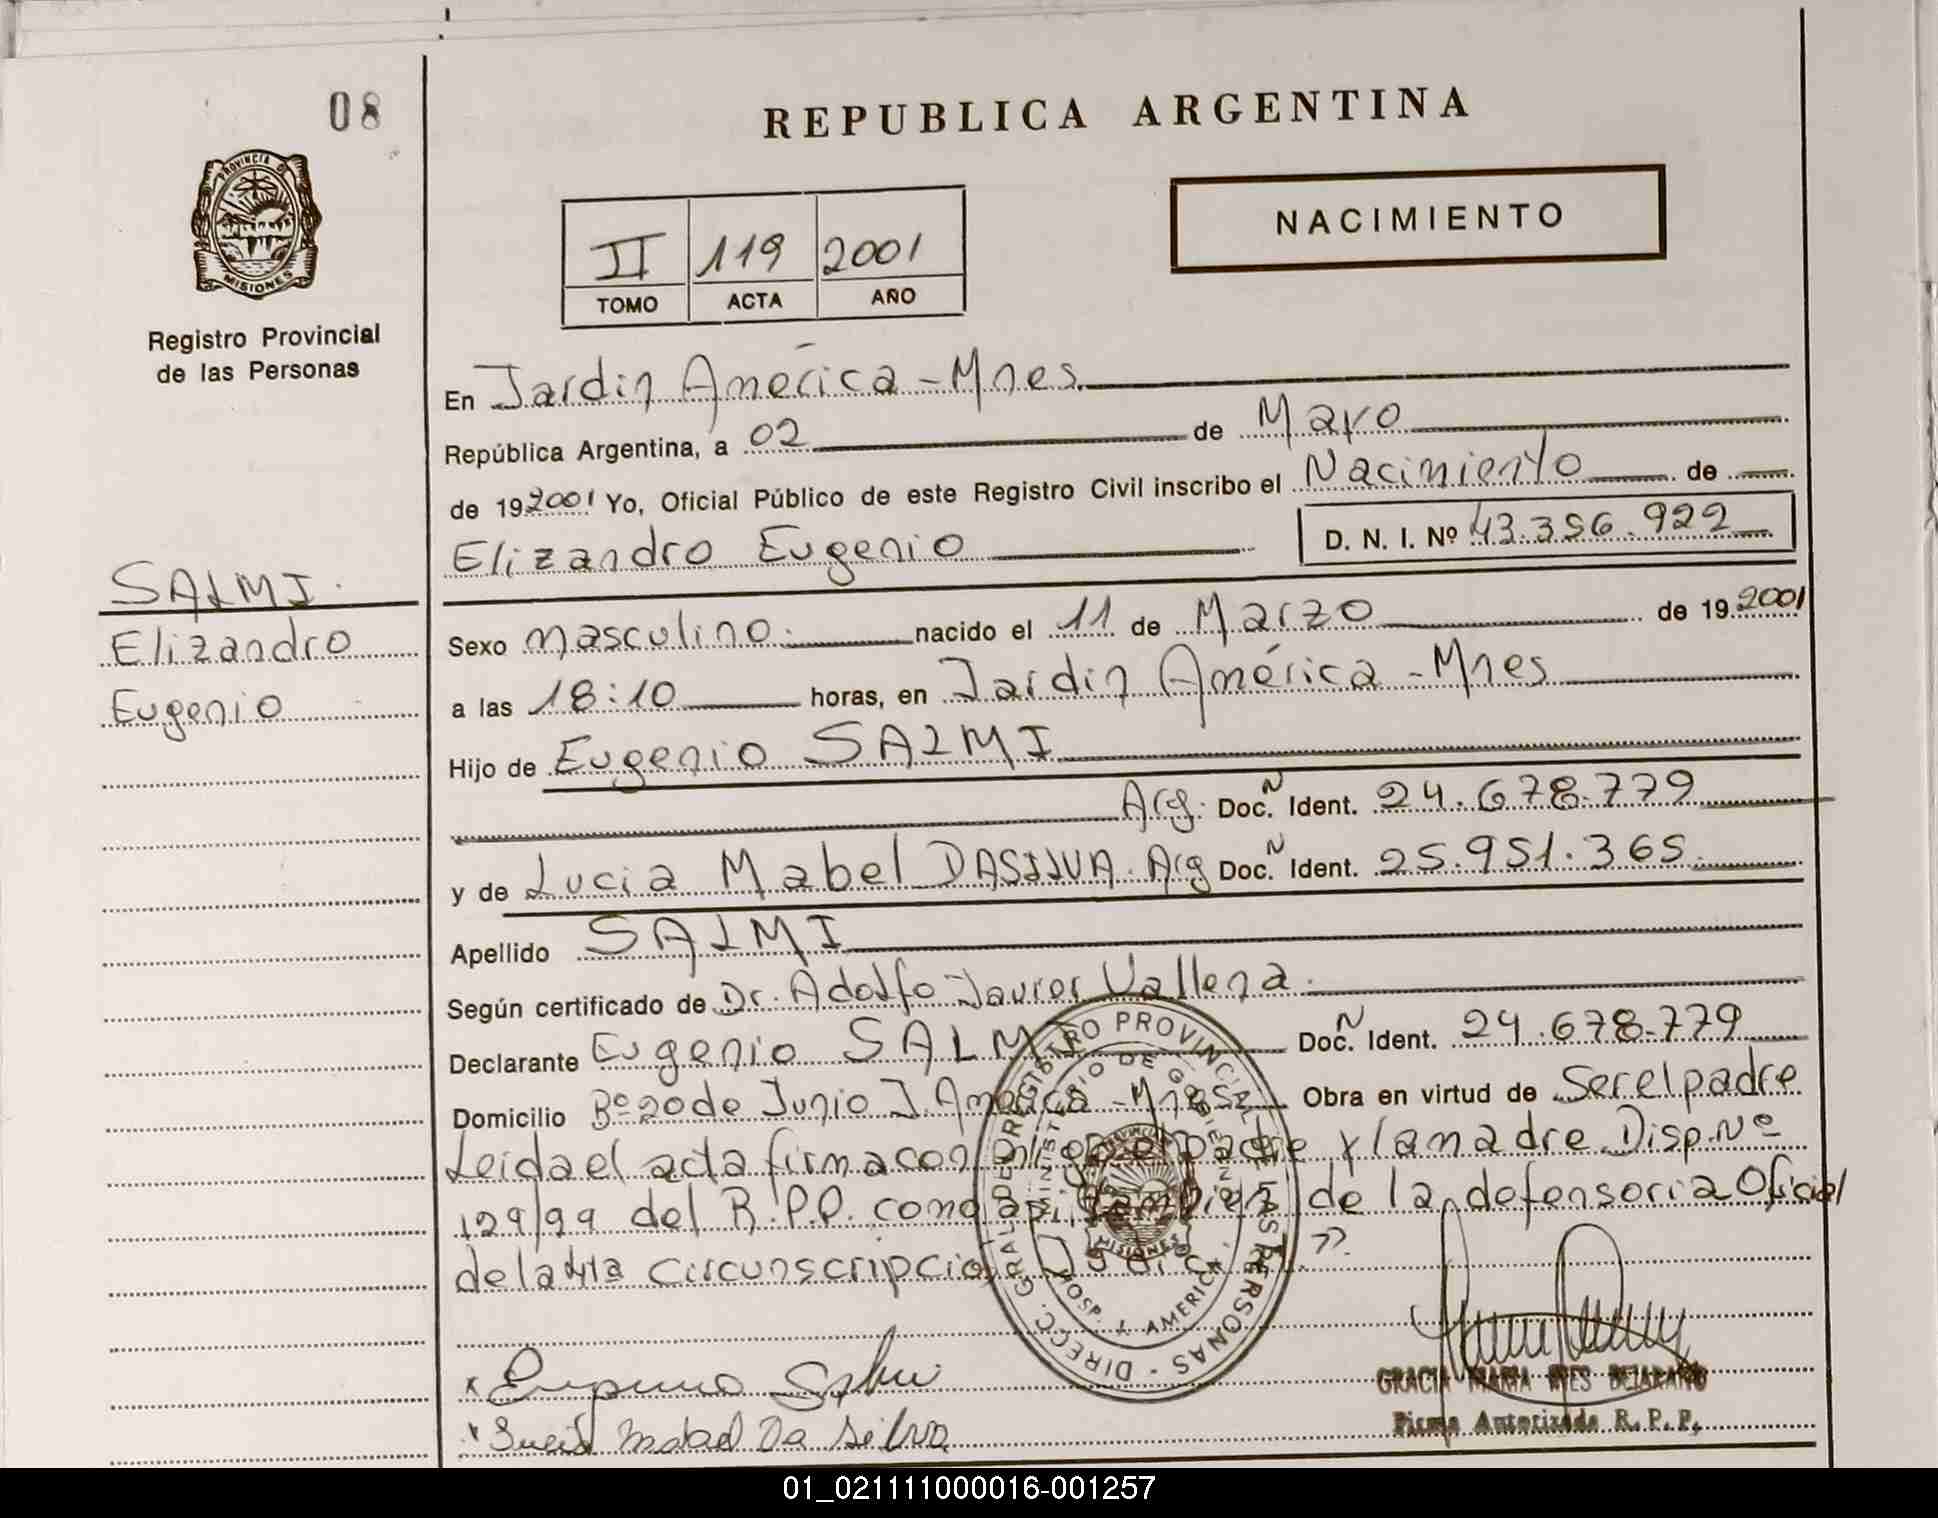 08
REPUBLICA ARGENTINA
PROVINCIA DE
MISIONES
Registro Provincial
de las Personas
II 119 2001
TOMO ACTA AÑO
NACIMIENTO
En Jardin América - Mnes.
República Argentina, a 02 de Mayo
de 192001 Yo, Oficial Público de este Registro Civil inscribo el Nacimiento de
Elizandro Eugenio D. N. I. Nº 43.356.922
SALMI.
Elizandro
Eugenio
Sexo masculino. nacido el 11 de Marzo de 19 2001
a las 18:10 horas, en Jardin América - Mnes
Hijo de Eugenio SALMI
Arg. Doc. N Ident. 24.678.779
y de Lucia Mabel DASILVA. Arg Doc. N Ident. 25.951.365.
Apellido SALMI
Según certificado de Dr. Adolfo Javier Vallena.
Declarante Eugenio SALMI Doc. N Ident. 24.678.779
Domicilio Bº 20 de Junio J. América - Mnes Obra en virtud de Ser el padre
Leida el acta firma conmigo el padre y la madre. Disp. Nº
129/99 del R.P.P. como asi tambien de la defensoria Oficial
de la 4ta Circunscripcion Judicial
DIRECC. GRAL. DE REGISTRO PROVINCIAL DE LAS PERSONAS
MINISTERIO DE GOBIERNO
MISIONES
HOSP. J. AMERICA
Eugenio Salmi
Lucia Mabel Da Silva
GRACIA MARIA INES BEJARANO
Firma Autorizada R. P. P.
01_021111000016-001257